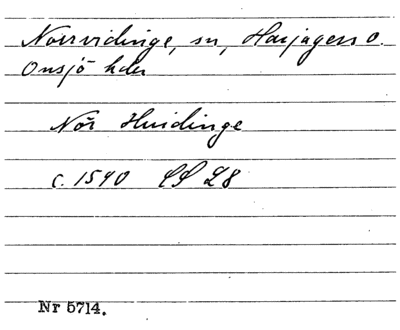 Norrvidinge, sn, Harjagers o.
Onsjö hder
Nör Huidinge
c. 1540 LS L8
Nr 5714.